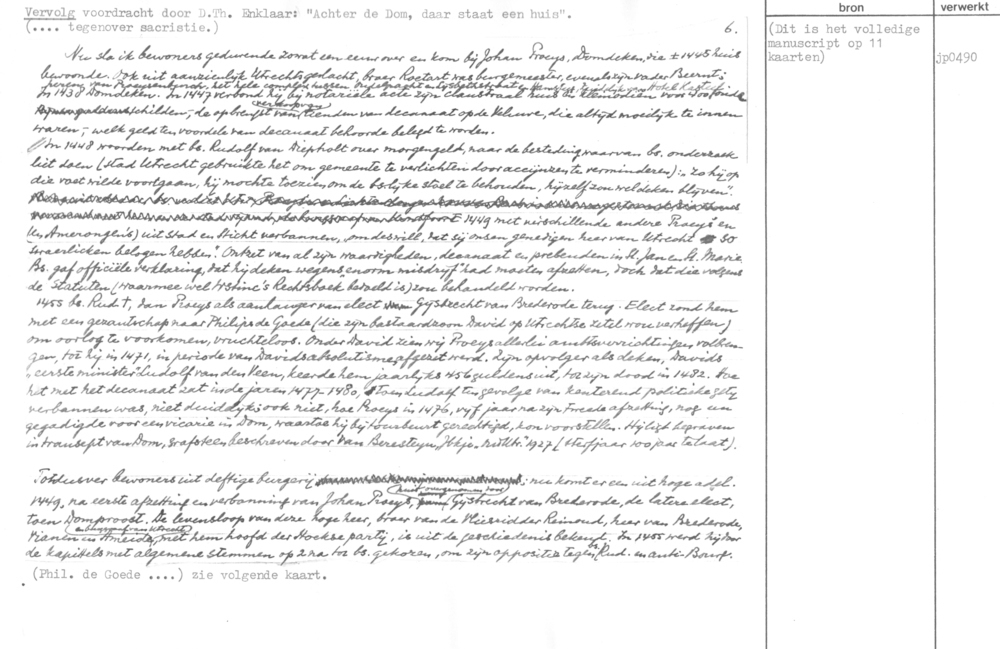 Vervolg voordracht door D.Th. Enklaar: "Achter de Dom, daar staat een huis".
(.... tegenover sacristie.)
6.
bron
verwerkt
(Dit is het volledige
manuscript op 11
kaarten)
jp0490
Nu sla ik bewoners gedurende zowat een eeuw over en kom bij Johan Proeys, Domdeken, die ± 1445 huis
bewoonde. Ook uit aanzienlijk Utrechts geslacht, broer Roetart was burgemeester, evenals zijn vader Beernt;
In 1438 Domdeken. In 1447 verbond hij bij notariële acte zijn claustraal huis en kleinodien voor
schilden, de opbrengst van verkopen van tienden van decanaat op de Veluwe, die altijd moeilijk te innen
waren, welk geld ten voordele van decanaat behoorde belegd te worden.
In 1448 woorden met bs. Rudolf van Diepholt over morgengeld, naar de besteding waarvan bs. onderzoek
liet doen (stad Utrecht gebruikte het om gemeente te verlichten door accijnzen te verminderen): "zo hij op
die voet wilde voortgaan, hij mochte toezien om de bs.lijke stoel te behouden, hij zelf zou wel deken blijven".
1449 met verschillende andere Proeys' en
(v. Amerongen's) uit stad en Sticht verbannen, "om deswill, dat sij onsen genedigen heer van Utrecht so
swaerlicken belogen hebben". Ontzet van al zijn waardigheden, decanaat en prebenden in St. Jan en St. Marie.
Bs. gaf officiële verklaring, dat hij deken wegens "enorm misdrijf" had moeten afzetten, doch dat die volgens
de Statuten (waarmee wel Wstinc's Rechtsboek bedoeld is) zou behandeld worden.
1455 bs. Rud †, dan Proeys als aanhanger van elect Gijsbrecht van Brederode terug. Elect zond hem
met een gezantschap naar Philips de Goede (die zijn bastaardzoon David op Utrechtse zetel wou verheffen)
om oorlog te voorkomen, vruchteloos. Onder David zien wij Proeys allerlei ambtsverrichtingen volbren-
gen, tot hij in 1471, in periode van Davids absolutisme afgezet werd. Zijn opvolger als deken, Davids
"eerste minister" Ludolf van den Veen, keerde hem jaarlijks 456 guldens uit, tot zijn dood in 1482. Hoe
het met het decanaat zat in de jaren 1477-1480, toen Ludolf ten gevolge van kenterend politieke getij
verbannen was, niet duidelijk; ook niet, hoe Proeys in 1476, vijf jaar na zijn tweede afzetting, nog een
gegadigde voor een vicarie in Dom, waartoe hij bij tourbeurt gerechtigd, kon voorstellen. Hij ligt begraven
in transept van Dom, grafsteen beschreven door Van Beresteyn, "Jbkje Oud-Utr." 1927 (sterfjaar 100 jaar te laat).
Totdusver bewoners uit deftige burgerij; nu komt er een uit hoge adel.
1449, na eerste afzetting en verbanning van Johan Proeys, Gijsbrecht van Brederode, de latere elect,
toen Domproost. De levensloop van deze hoge heer, broer van de Vliesridder Reinoud, heer van Brederode,
Vianen en Ameide, en burggraaf van Utrecht, met hem hoofd der Hoekse partij, is uit de geschiedenis bekend. In 1455 werd hij door
de kapittels met algemene stemmen op 2 na tot bs. gekozen, om zijn oppositie tegen bs. Rud. en anti-Bourg.
(Phil. de Goede ....) zie volgende kaart.